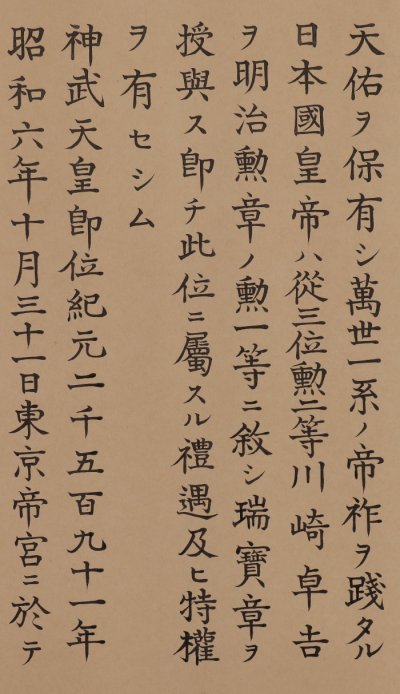 天佑ヲ保有シ萬世一系ノ帝祚ヲ踐タル
日本國皇帝ハ從三位勲二等川崎卓吉
ヲ明治勲章ノ勲一等ニ敘シ瑞寶章ヲ
授與ス即チ此位ニ屬スル禮遇及ヒ特權
ヲ有セシム
神武天皇即位紀元二千五百九十一年
昭和六年十月三十一日東京帝宮ニ於テ